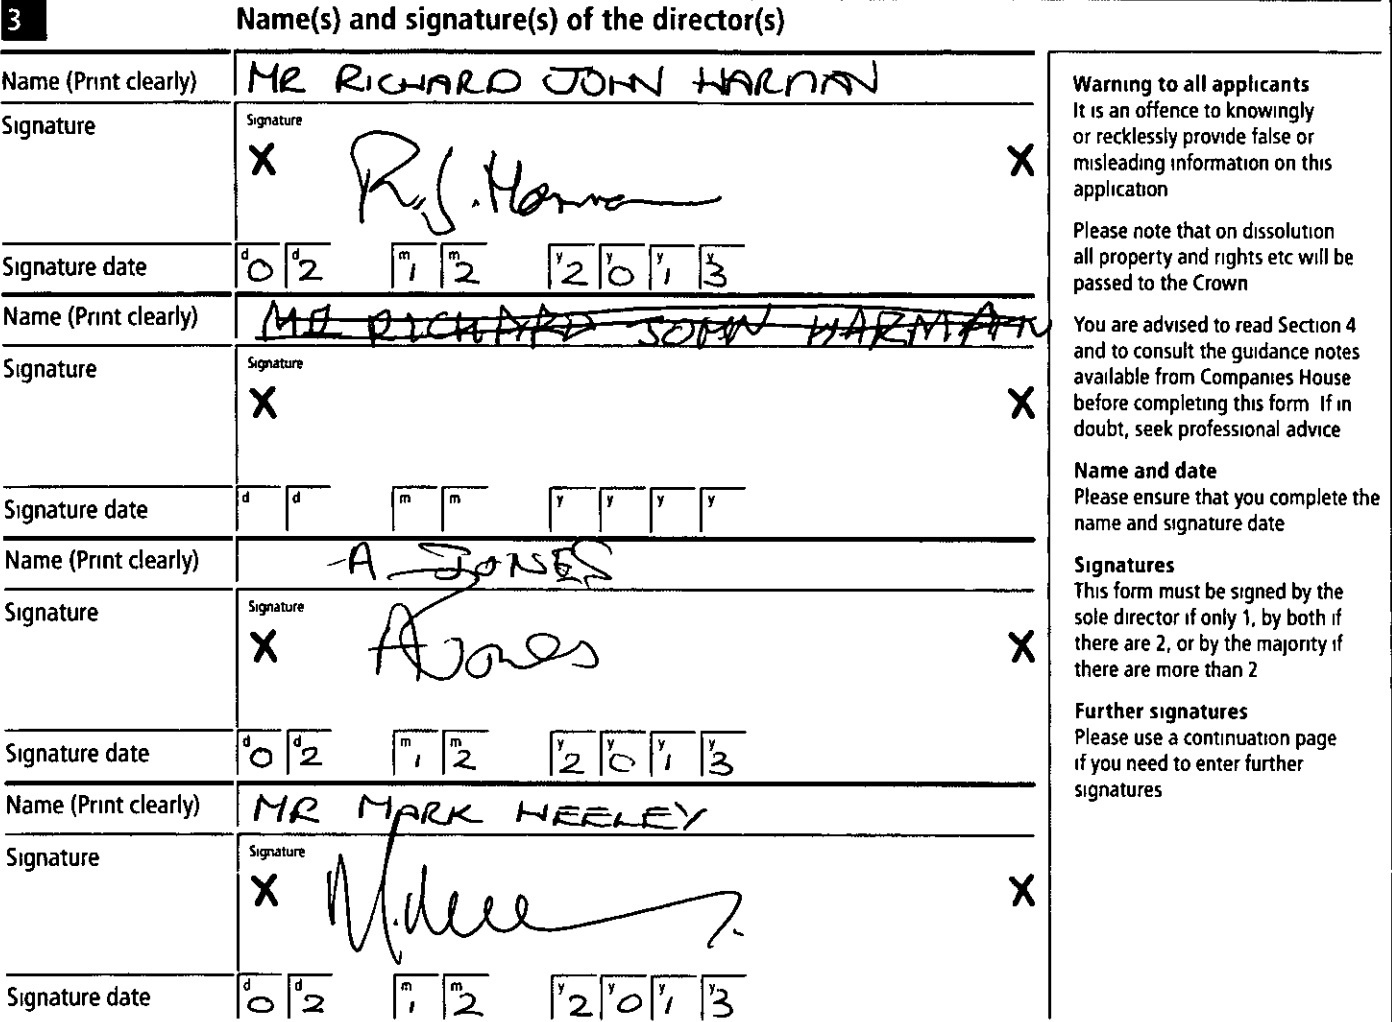 3 Name(s) and signature(s) of the director(s)
Name (Print clearly) MR RICHARD JOHN HARMAN
Signature Signature
X R.J. Harman X
Signature date d0 d2 m1 m2 y2 y0 y1 y3
Name (Print clearly) MR RICHARD JOHN HARMAN
Signature Signature
X X
Signature date d d m m y y y y
Name (Print clearly) A JONES
Signature Signature
X A Jones X
Signature date d0 d2 m1 m2 y2 y0 y1 y3
Name (Print clearly) MR MARK HEELEY
Signature Signature
X X
Signature date d0 d2 m1 m2 y2 y0 y1 y3
Warning to all applicants
It is an offence to knowingly
or recklessly provide false or
misleading information on this
application
Please note that on dissolution
all property and rights etc will be
passed to the Crown
You are advised to read Section 4
and to consult the guidance notes
available from Companies House
before completing this form If in
doubt, seek professional advice
Name and date
Please ensure that you complete the
name and signature date
Signatures
This form must be signed by the
sole director if only 1, by both if
there are 2, or by the majority if
there are more than 2
Further signatures
Please use a continuation page
if you need to enter further
signatures